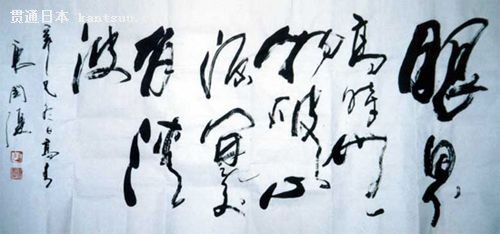 贯通日本
眼界
高時無
物礙心
源開處
有清
波
辛巳